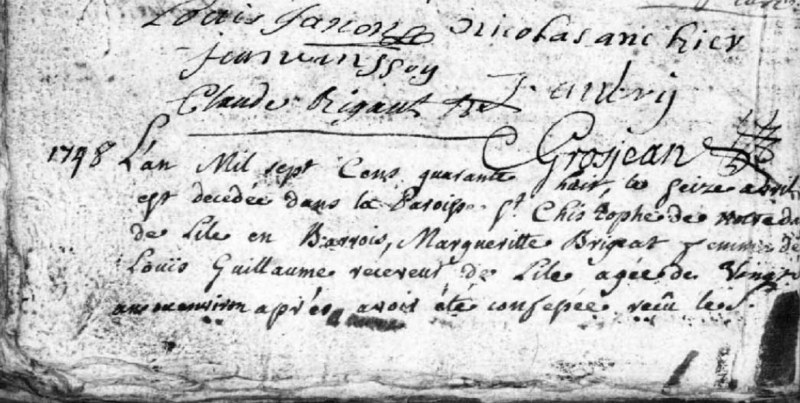 Louis Janon Nicolas anchier
jean
Claude Rigaut
Grosjean
1748 L'an Mil sept Cens quarante huit, le seize avril
est decedée dans la Paroisse St. Christophe de notre da
de Lile en Barrois, Margueritte Brigeat femme de
Louis Guillaume receveur de Lile agée de
ans environ après avoir été confessée reçu le S.